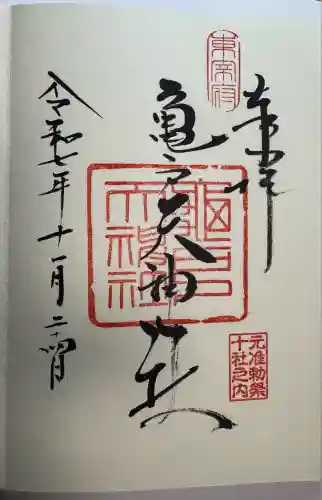 東宰府
奉拝
亀戸天神社
龜戸天神社
元准勅祭
十社之内
令和七年十一月二十四日